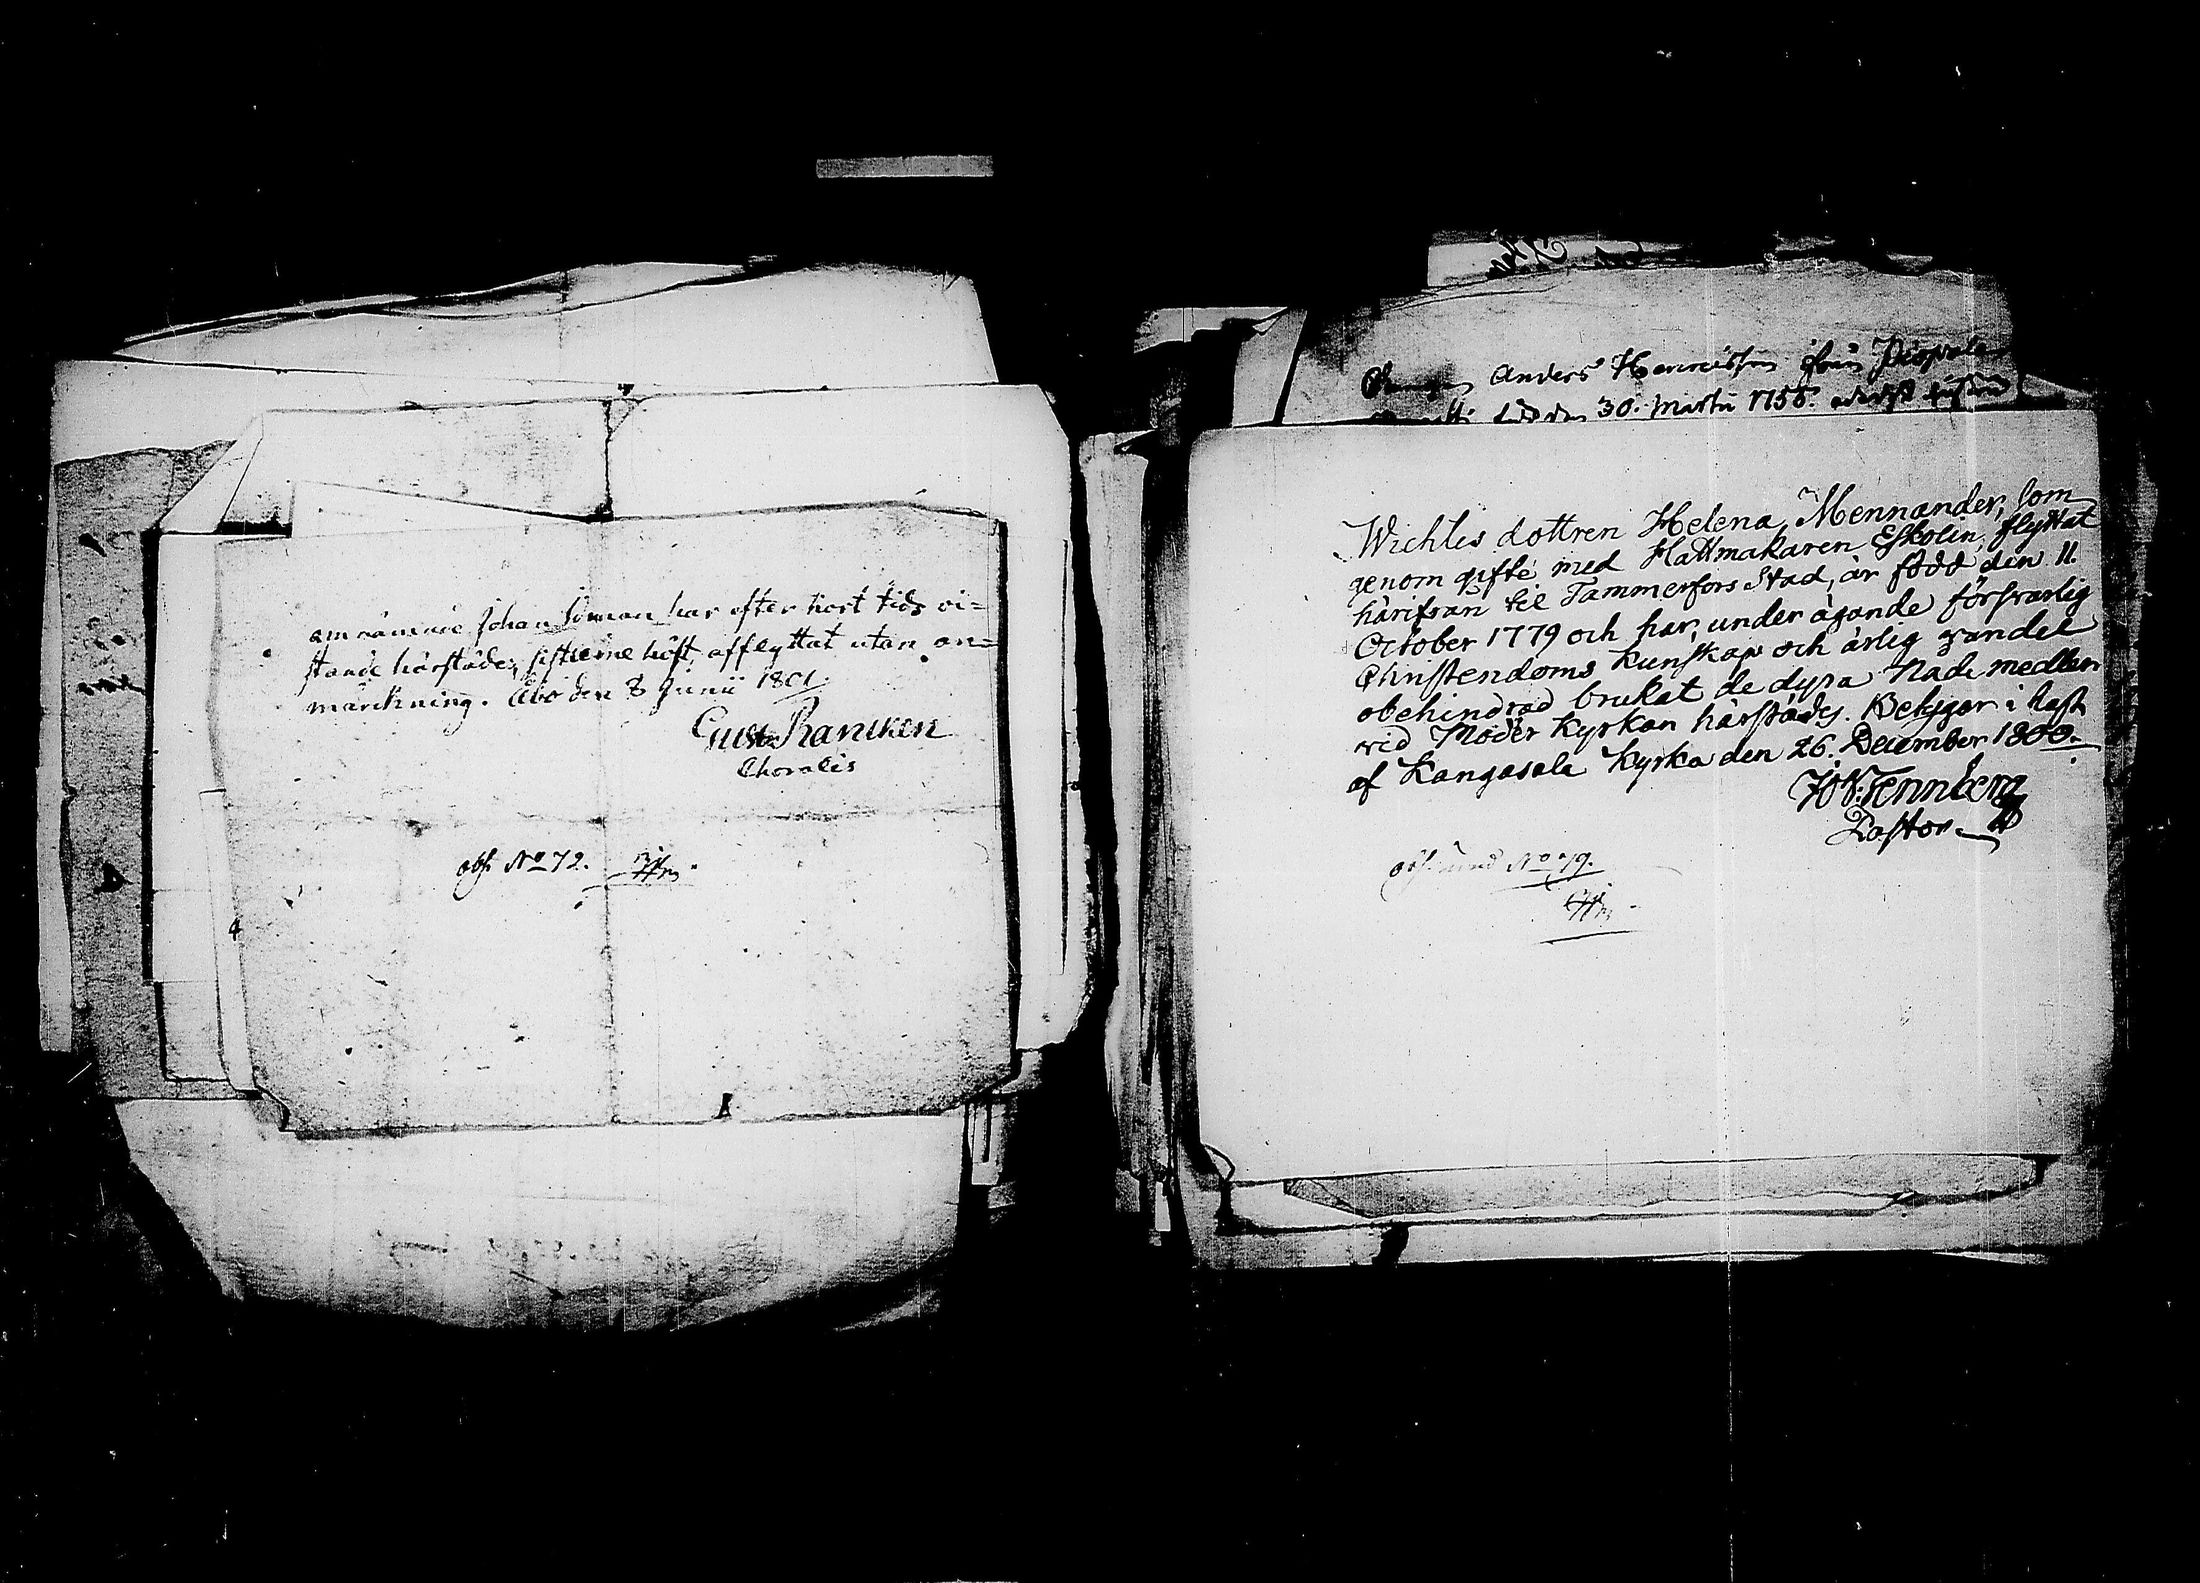 omnämnde Johan Öman har efter kort tids vi=
stande härstädes, sistledne höst, afflyttat utan an=
märckning. Åbo den 8 Junii 1801.
Gust. Rancken
Choralis
obs. No 72.
Anders Henricsson från
30. Martii 1755.
Wichtes dottren Helena Mennander, som
genom gifte med Hattmakaren Eskolin, flyttat
härifrån til Tammerfors Stad, är född den 11.
October 1779 och har, under ägande försvarlig
Christendoms kunskap och ärlig vandel
obehindrad brukat de dyra Nade medlen
vid Moder Kyrkan härstädes. Betygar i hast
af Kangasala Kyrka den 26. December 1800.
Tennberg
Pastor
No 79.